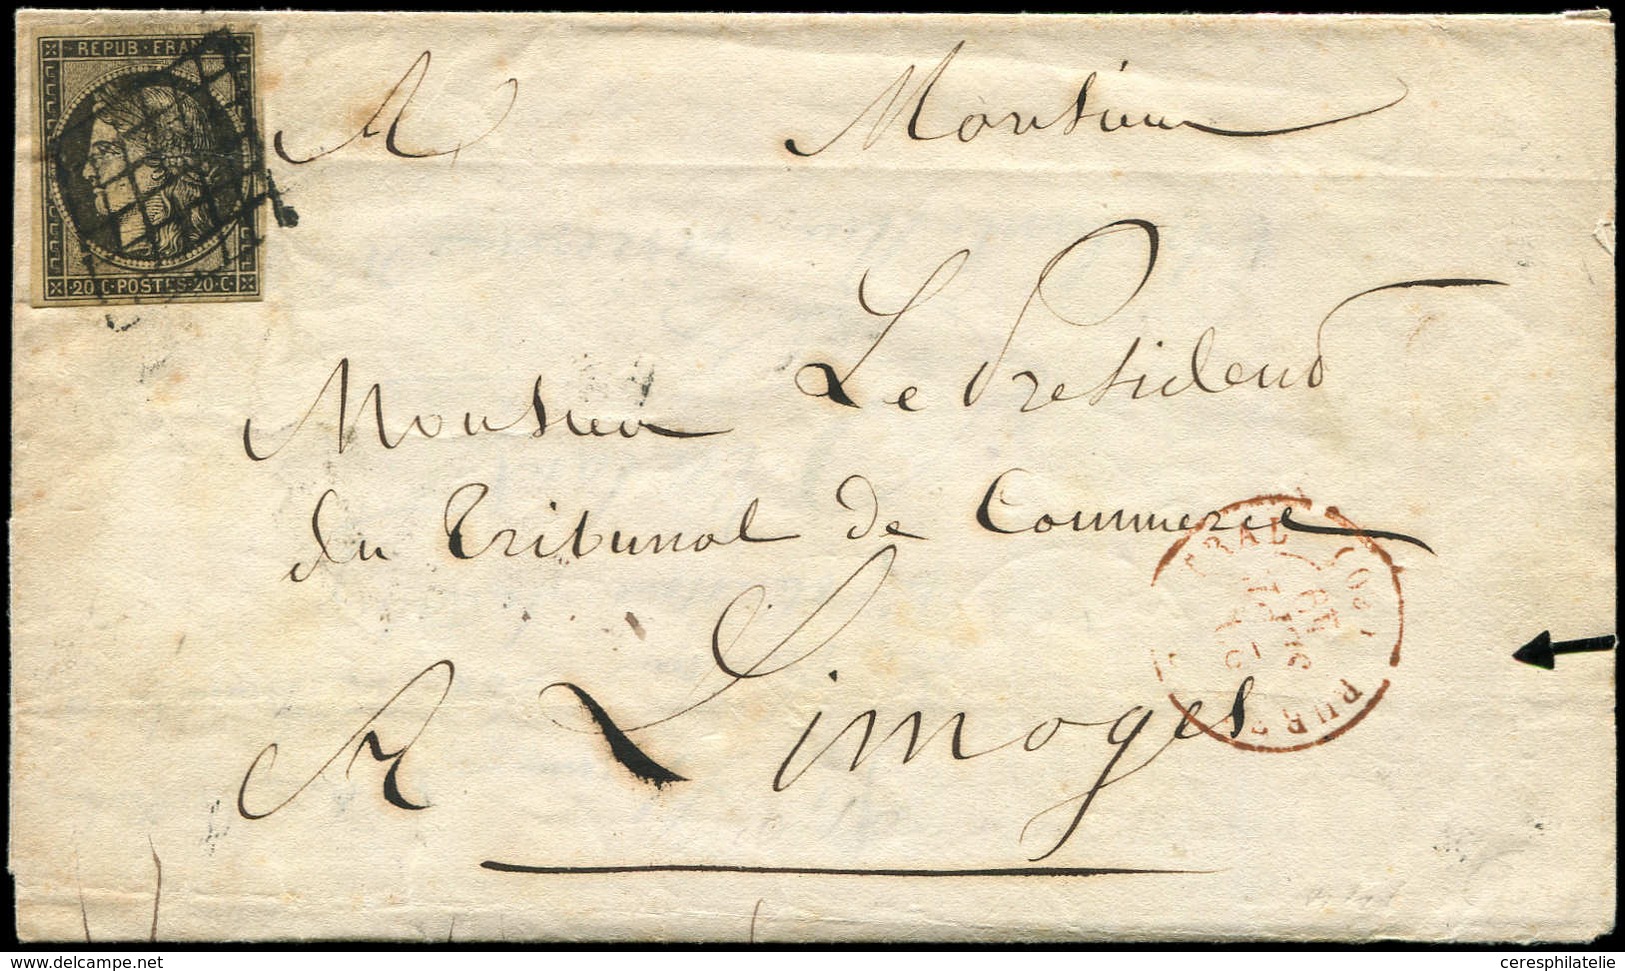 REPUB·FRANC
20·C·POSTES·20·C·
A Monsieur
Monsieur Le Président
du Tribunal de Commerce
A Limoges
www.delcampe.net
ceresphilatelie